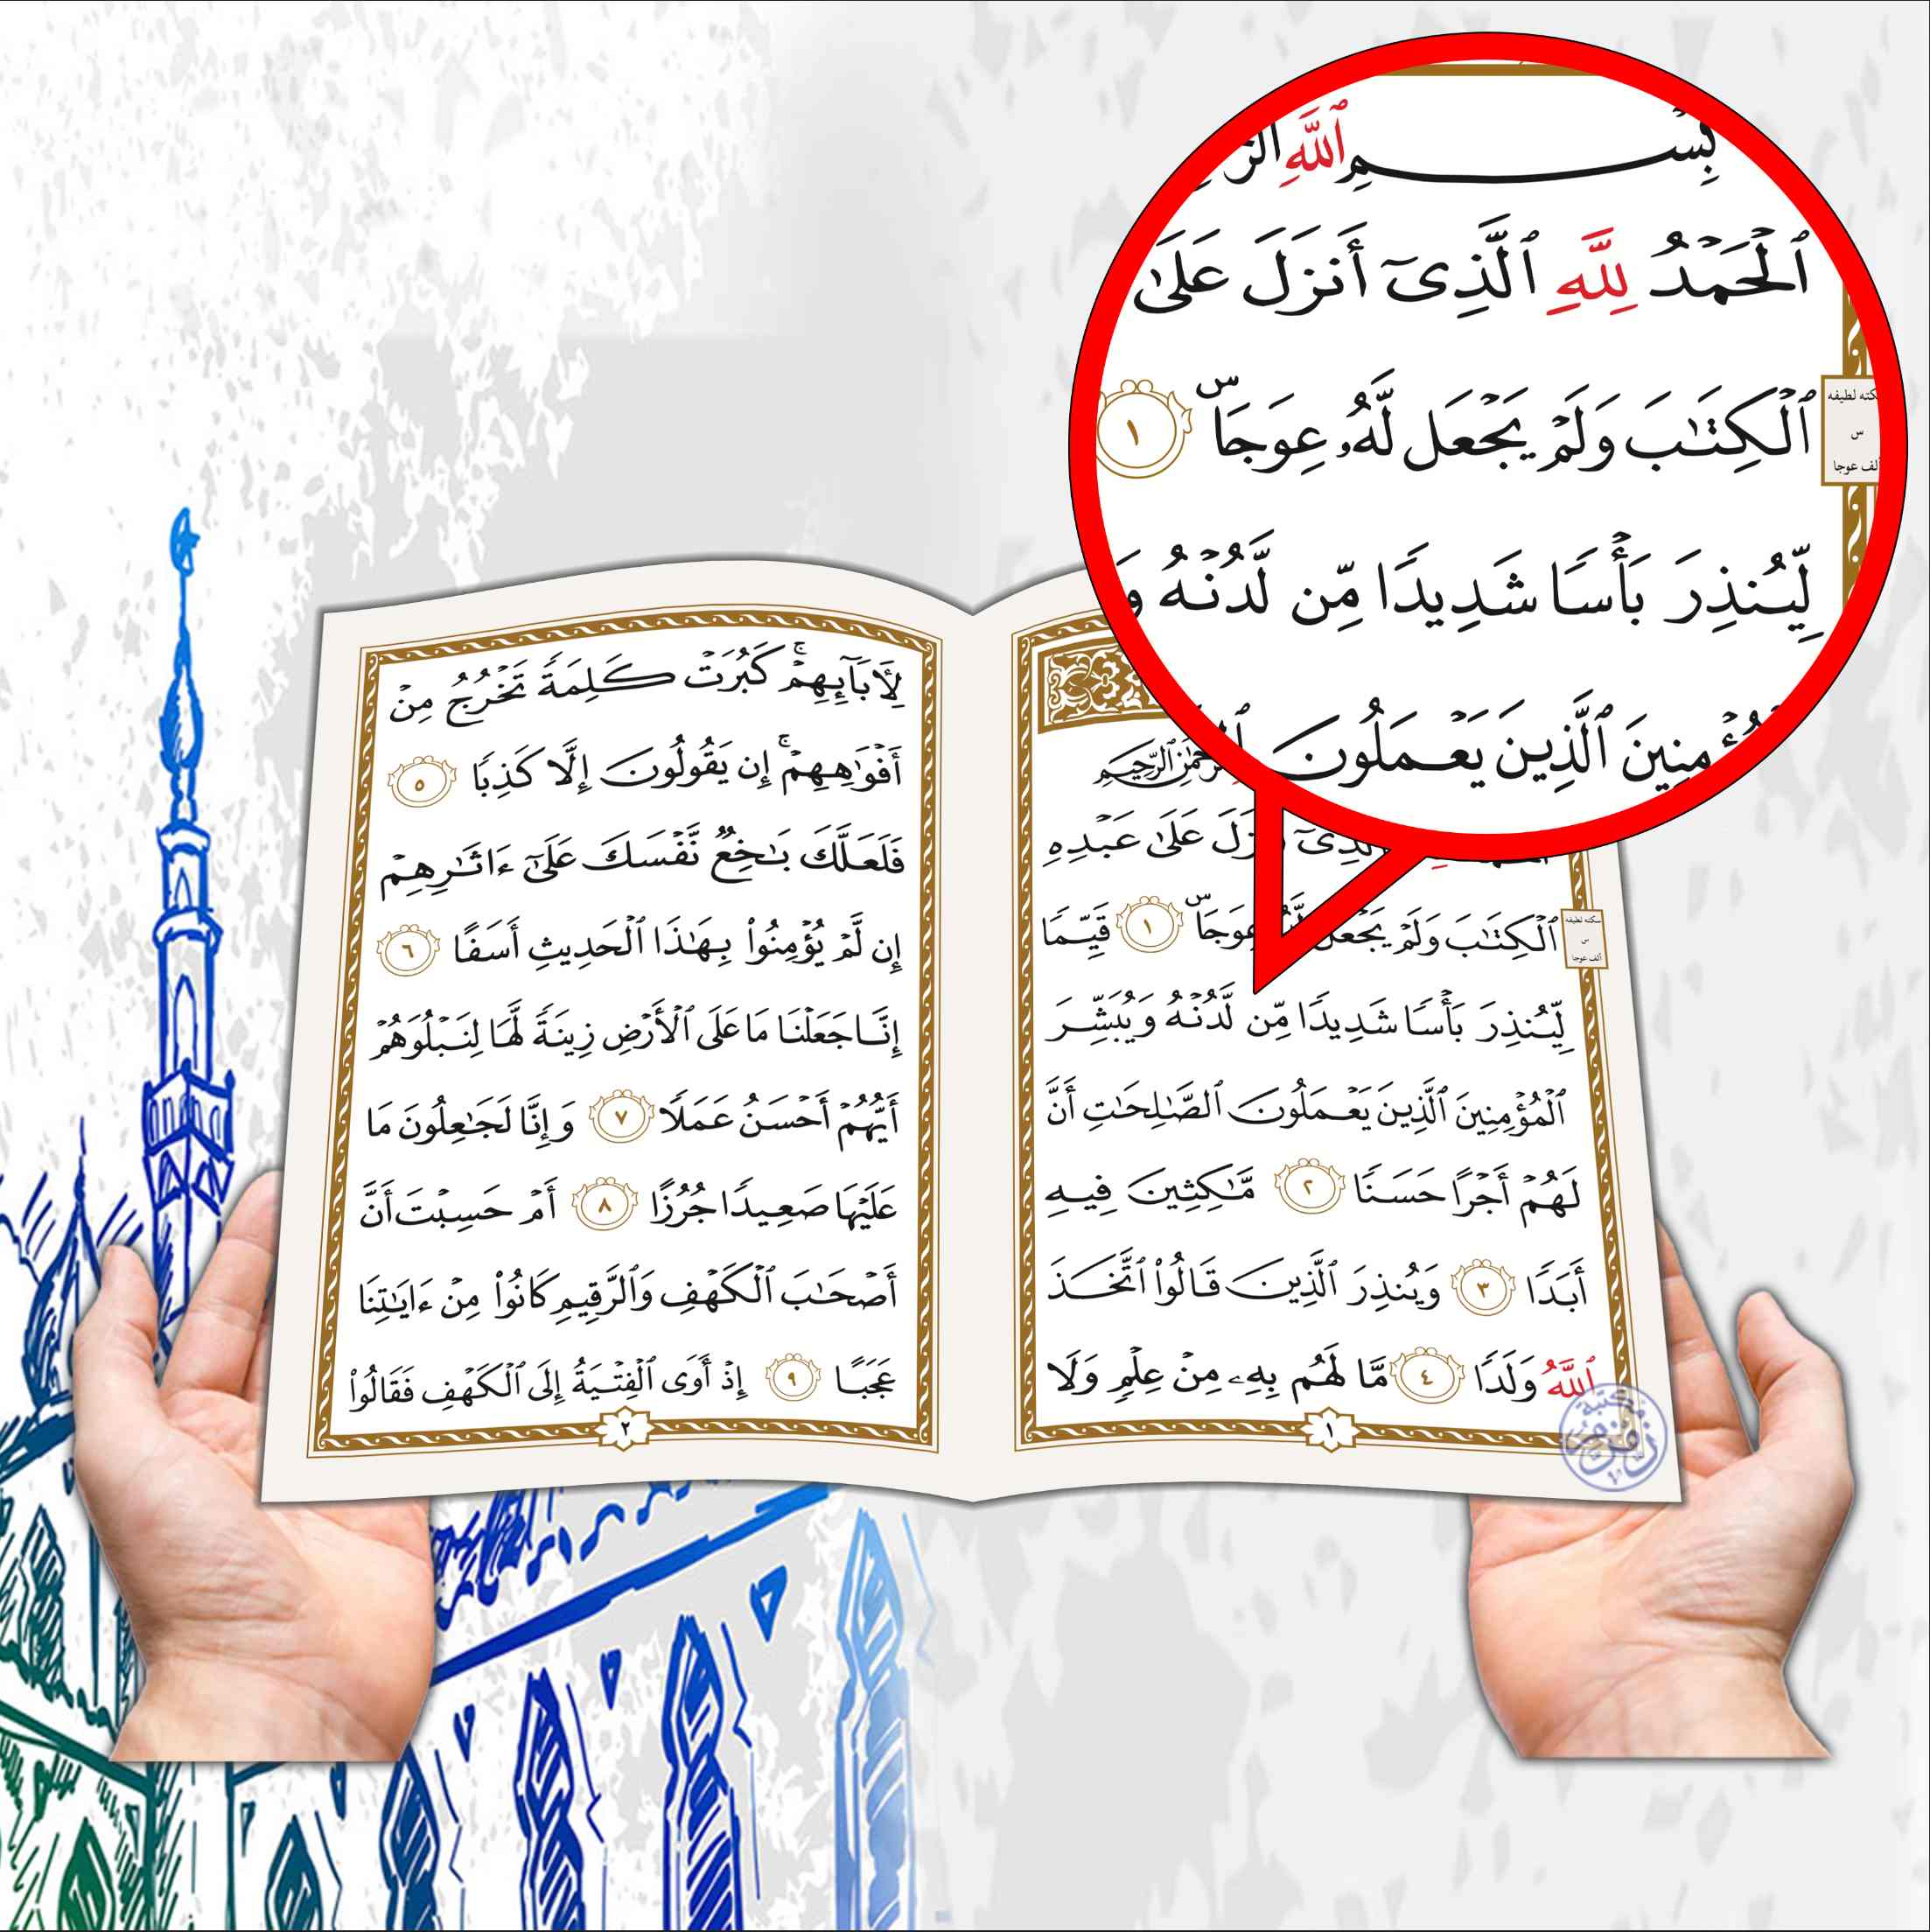 بِسْمِ ٱللَّهِ
ٱلْحَمْدُ لِلَّهِ ٱلَّذِىٓ أَنزَلَ عَلَىٰ
ٱلْكِتَٰبَ وَلَمْ يَجْعَل لَّهُۥ عِوَجَاۜ ١
سكته لطيفه
س
ألف عوجا
لِّيُنذِرَ بَأْسًا شَدِيدًا مِّن لَّدُنْهُ وَ
ٱلَّذِينَ يَعْمَلُونَ
ٱلرَّحْمَٰنِ ٱلرَّحِيمِ
عَلَىٰ عَبْدِهِ
ٱلْكِتَٰبَ وَلَمْ يَجْعَل عِوَجَاۜ ١ قَيِّمًا
سكته لطيفه
س
ألف عوجا
لِّيُنذِرَ بَأْسًا شَدِيدًا مِّن لَّدُنْهُ وَيُبَشِّرَ
ٱلْمُؤْمِنِينَ ٱلَّذِينَ يَعْمَلُونَ ٱلصَّٰلِحَٰتِ أَنَّ
لَهُمْ أَجْرًا حَسَنًا ٢ مَّٰكِثِينَ فِيهِ
أَبَدًا ٣ وَيُنذِرَ ٱلَّذِينَ قَالُوا۟ ٱتَّخَذَ
ٱللَّهُ وَلَدًا ٤ مَّا لَهُم بِهِۦ مِنْ عِلْمٍ وَلَا
١
مكتبة زمزم
لِـَٔابَآئِهِمْۚ كَبُرَتْ كَلِمَةً تَخْرُجُ مِنْ
أَفْوَٰهِهِمْۚ إِن يَقُولُونَ إِلَّا كَذِبًا ٥
فَلَعَلَّكَ بَٰخِعٌ نَّفْسَكَ عَلَىٰٓ ءَاثَٰرِهِمْ
إِن لَّمْ يُؤْمِنُوا۟ بِهَٰذَا ٱلْحَدِيثِ أَسَفًا ٦
إِنَّا جَعَلْنَا مَا عَلَى ٱلْأَرْضِ زِينَةً لَّهَا لِنَبْلُوَهُمْ
أَيُّهُمْ أَحْسَنُ عَمَلًا ٧ وَإِنَّا لَجَٰعِلُونَ مَا
عَلَيْهَا صَعِيدًا جُرُزًا ٨ أَمْ حَسِبْتَ أَنَّ
أَصْحَٰبَ ٱلْكَهْفِ وَٱلرَّقِيمِ كَانُوا۟ مِنْ ءَايَٰتِنَا
عَجَبًا ٩ إِذْ أَوَى ٱلْفِتْيَةُ إِلَى ٱلْكَهْفِ فَقَالُوا۟
٢